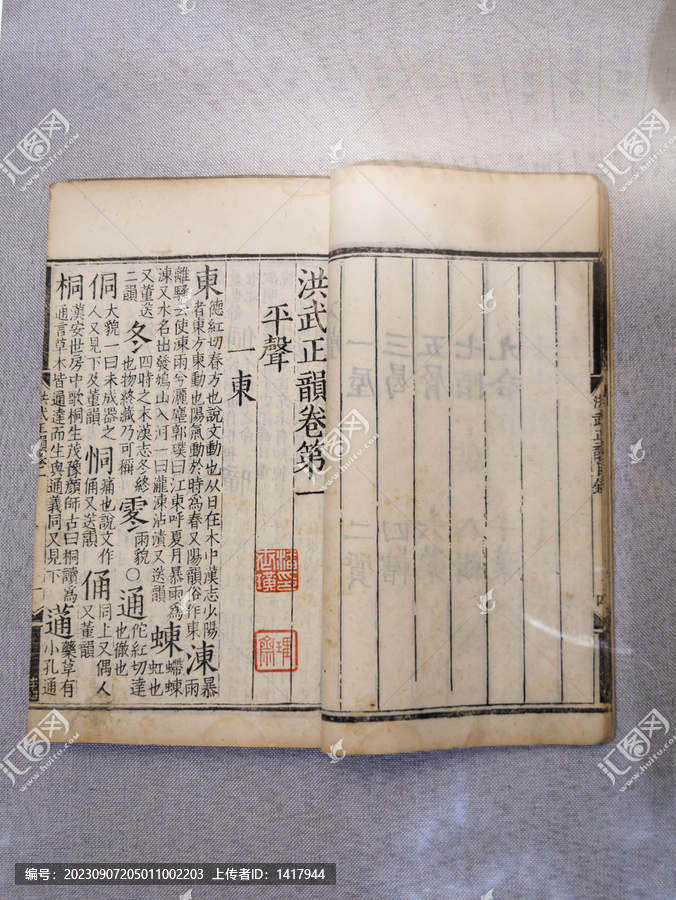 洪武正韻目錄
洪武正韻卷第一
平聲
一東
東 德紅切春方也說文動也从日在木中漢志少陽者東方東動也陽氣動於時爲春又陽韻俗作東 涷 暴雨
離騷云使涷雨兮灑塵郭璞曰江東呼夏月暴雨爲涷又水名出發鳩山入河一曰瀧涷沾漬又送韻 蝀 螮蝀虹也
又董送二韻 冬 四時之末漢志冬終也物終藏乃可稱 雨貌 ○ 通 佗紅切達也徹也
侗 大貌一曰未成器之人又見下及董韻 恫 痛也說文作痌又送韻 俑 同上又偶人又董韻
桐 漢安世房中歌桐生茂豫顏師古曰桐讀爲通言草木皆通達而生與通義同又見下 蓪 藥草有小孔通
洪武正韻卷一
汇图网
www.huitu.com
编号：20230907205011002203 上传者ID：1417944